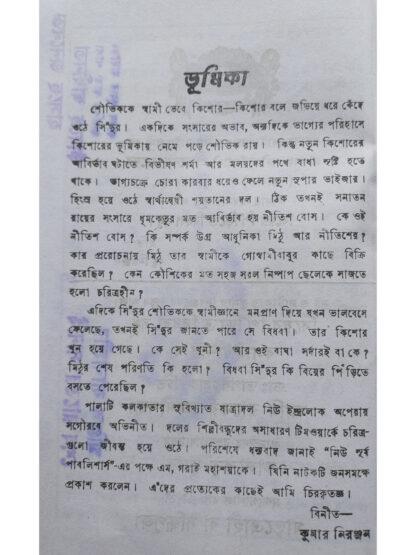 ভূমিকা
শৌভিককে স্বামী ভেবে কিশোর—কিশোর বলে জড়িয়ে ধরে কেঁদে
ওঠে সিঁদুর। একদিকে সংসারের অভাব, অন্যদিকে ভাগ্যের পরিহাসে
কিশোরের ভূমিকায় নেমে পড়ে শৌভিক রায়। কিন্তু নতুন কিশোরের
আবির্ভাব ঘটাতে বিভীষণ শর্মা আর মলয়দের পথে বাধা সৃষ্টি হতে
থাকে। ভাগ্যচক্রে চোরা কারবার ধরেও ফেলে নতুন সুপার ভাইজার।
হিংস্র হয়ে ওঠে স্বার্থান্বেষী শয়তানের দল। ঠিক তখনই সনাতন
রায়ের সংসারে ধূমকেতুর মত আবির্ভাব হয় নীতিশ বোস। কে ওই
নীতিশ বোস? কি সম্পর্ক উগ্র আধুনিকা মিঠু আর নীতিশের?
কার প্ররোচনায় মিঠু তার স্বামীকে গোস্বামীবাবুর কাছে বিক্রি
করেছিল? কেন কৌশিকের মত সহজ সরল নিষ্পাপ ছেলেকে সাজতে
হলো চরিত্রহীন?
এদিকে সিঁদুর শৌভিককে স্বামীজ্ঞানে মনপ্রাণ দিয়ে যখন ভালবেসে
ফেলেছে, তখনই সিঁদুর জানতে পারে সে বিধবা। তার কিশোর
খুন হয়ে গেছে। কে সেই খুনী? আর ওই বাঘা সর্দারই বা কে?
মিঠুর শেষ পরিণতি কি হলো? বিধবা সিঁদুর কি বিয়ের পিঁড়িতে
বসতে পেরেছিল?
পালাটি কলকাতার সুবিখ্যাত যাত্রাদল নিউ ইন্দ্রলোক অপেরায়
সগৌরবে অভিনীত। দলের শিল্পীবন্ধুদের অসাধারণ টিমওয়ার্কে চরিত্র-
গুলো জীবন্ত হয়ে ওঠে। পরিশেষে ধন্যবাদ জানাই "নিউ সূর্য
পাবলিশার্স"-এর পক্ষে এম, গরাই মহাশয়কে। যিনি নাটকটি জনসমক্ষে
প্রকাশ করলেন। এঁদের প্রত্যেকের কাছেই আমি চিরকৃতজ্ঞ।
বিনীত—
কুমার নিরঞ্জন